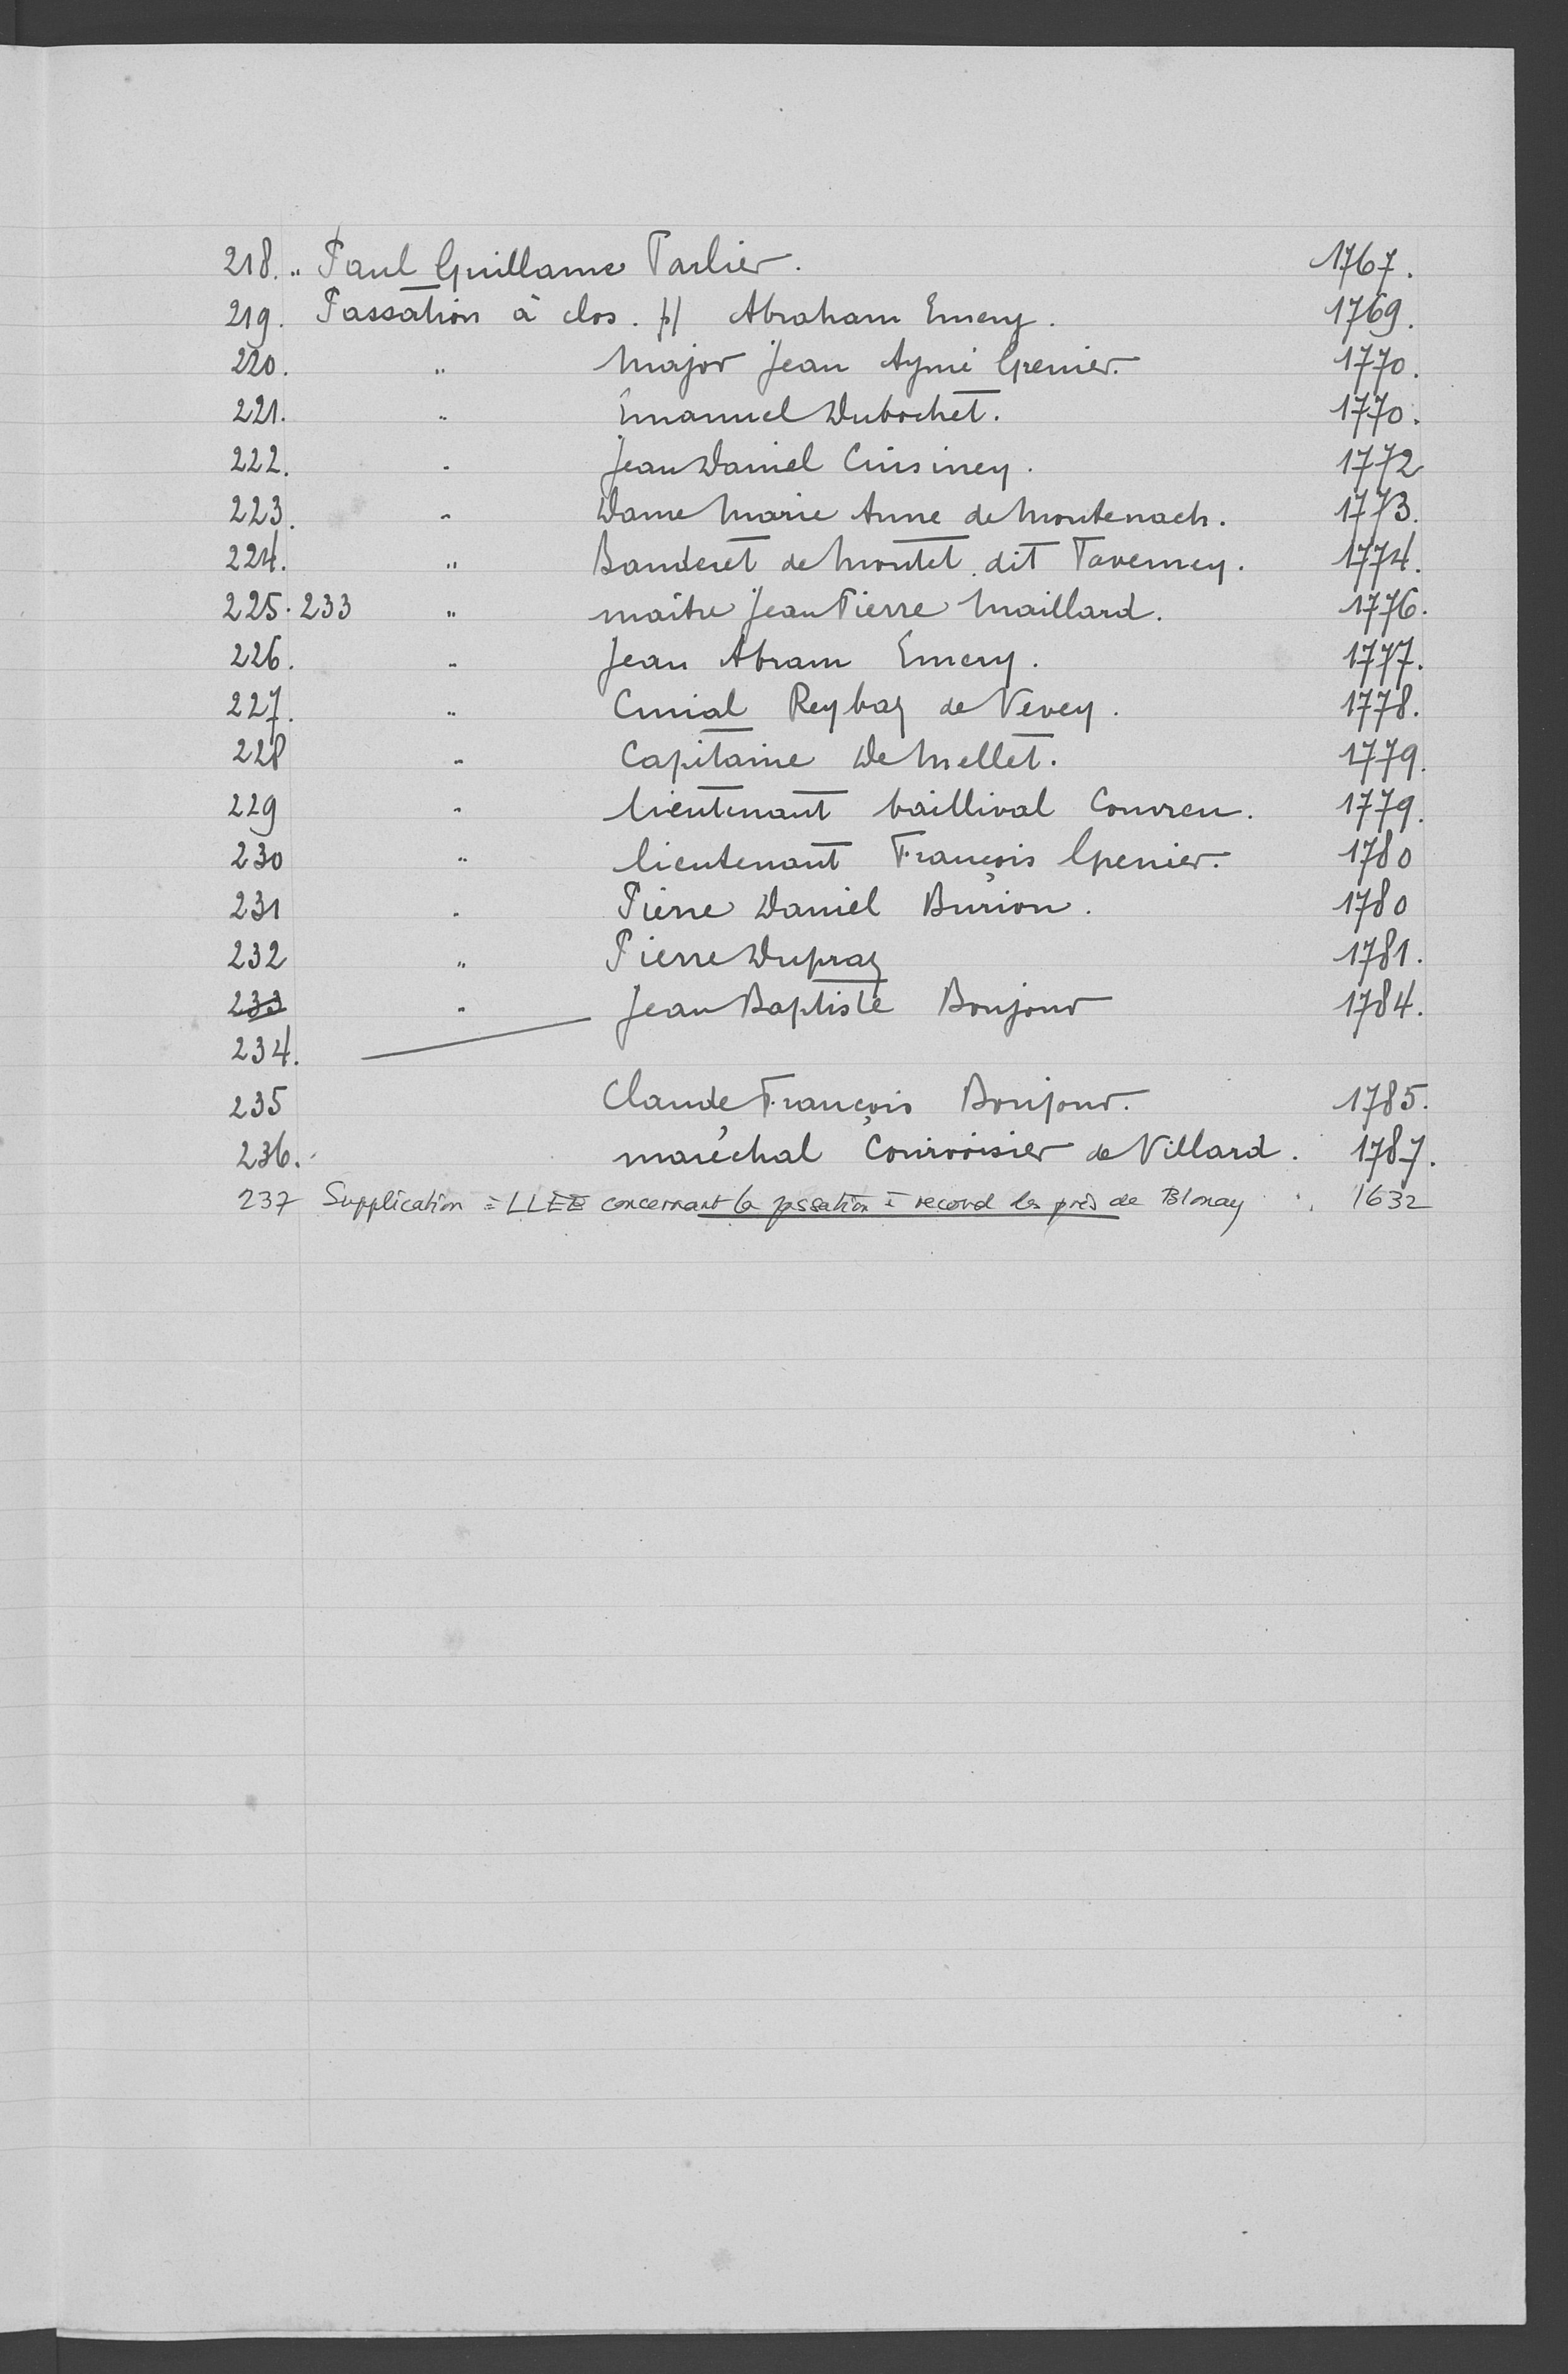 218. „ Paul Guillame Tarlier. 1767.
219. Passation à clos. p/ Abraham Emery. 1769.
220. „ Major Jean Aymé Grenier. 1770.
221. „ Emanuel Dubochet. 1770.
222. „ Jean Daniel Cuisiney. 1772
223. „ Dame Marie Anne de Montenach. 1773.
224. „ Banderet de Montet dit Taverney. 1774.
225. 233 „ maître Jean Pierre Maillard. 1776.
226. „ Jean Abram Emery. 1777.
227. „ Curial Reybaz de Vevey. 1778.
228 „ Capitaine De Mellet. 1779.
229 „ lieutenant baillival Couvreu. 1779.
230 „ lieutenant François Grenier. 1780
231 „ Pierre Daniel Burion. 1780
232 „ Pierre Dupraz 1781.
233 „ Jean Baptiste Bonjour 1784.
234.
235 Claude François Bonjour. 1785.
236. maréchal Courvoisier de Villard. 1787.
237 Supplication à LLEE concernant la passation à record les prés de Blonay. 1632